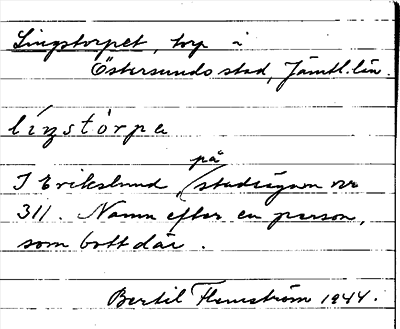 Lingstorpet, torp i
Östersunds stad, Jämtl. län.
lingstórpa
I Erikslund, på stadsägan nr
311. Namn efter en person,
som bott där.
Bertil Flemström 1944.